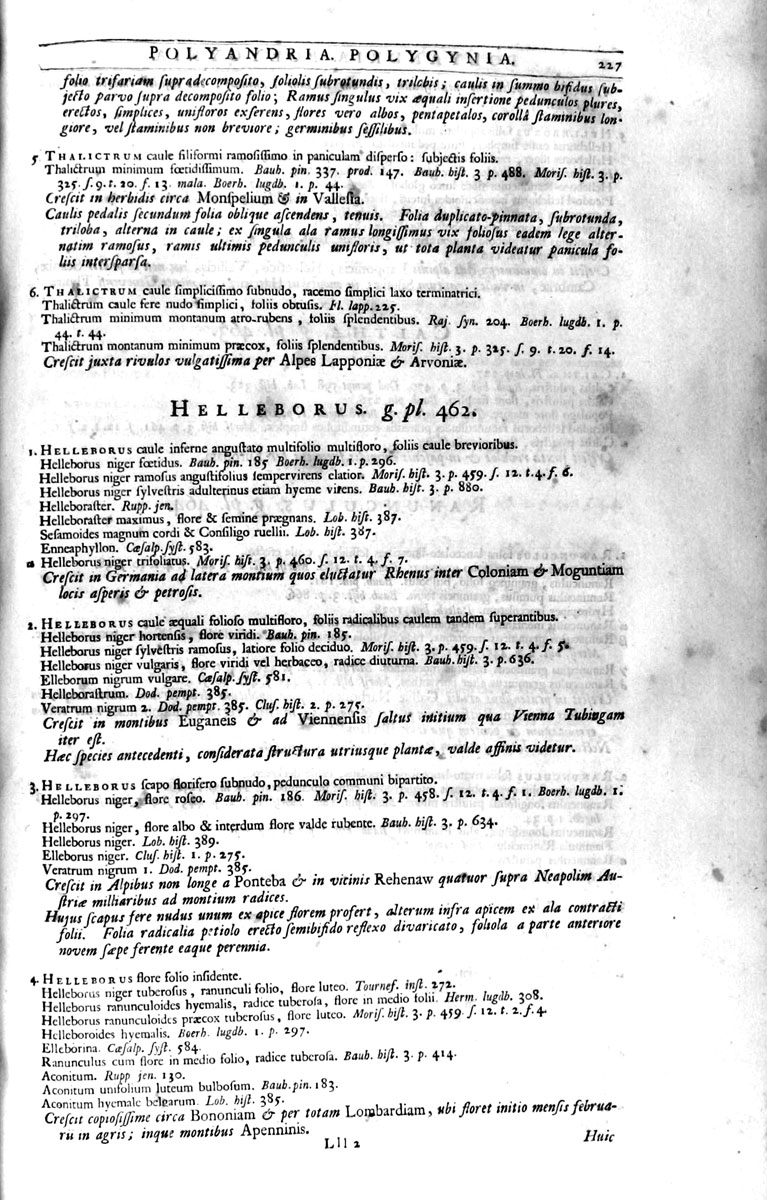 POLYANDRIA. POLYGYNIA. 227
folio trifariam supradecomposito, foliolis subrotundis, trilobis; caulis in summo bifidus sub-
jecto parvo supra decomposito folio; Ramus singulus vix æquali insertione pedunculos plures,
erectos, simplices, unifloros exserens, flores vero albos, pentapetalos, corollâ staminibus lon-
giore, vel staminibus non breviore; germinibus sessilibus.
5 THALICTRUM caule filiformi ramosissimo in paniculam disperso: subjectis foliis.
Thalictrum minimum fœtidissimum. Bauh. pin. 337. prod. 147. Bauh. hist. 3 p. 488. Moris. hist. 3. p.
325. s. 9. t. 20. f. 13. mala. Boerh. lugdb. 1. p. 44.
Crescit in herbidis circa Monspelium & in Vallesia.
Caulis pedalis secundum folia oblique ascendens, tenuis. Folia duplicato-pinnata, subrotunda,
triloba, alterna in caule; ex singula ala ramus longissimus vix foliosus eadem lege alter-
natim ramosus, ramis ultimis pedunculis unifloris, ut tota planta videatur panicula fo-
liis intersparsa.
6. THALICTRUM caule simplicissimo subnudo, racemo simplici laxo terminatrici.
Thalictrum caule fere nudo simplici, foliis obtusis. Fl. lapp. 225.
Thalictrum minimum montanum atro-rubens, foliis splendentibus. Raj. syn. 204. Boerh. lugdb. 1. p.
44. t. 44.
Thalictrum montanum minimum præcox, foliis splendentibus. Moris. hist. 3. p. 325. s. 9. t. 20. f. 14.
Crescit juxta rivulos vulgatissima per Alpes Lapponiæ & Arvoniæ.
HELLEBORUS. g. pl. 462.
1. HELLEBORUS caule inferne angustato multifolio multifloro, foliis caule brevioribus.
Helleborus niger fœtidus. Bauh. pin. 185 Boerh. lugdb. 1. p. 296.
Helleborus niger ramosus angustifolius sempervirens elatior. Moris. hist. 3. p. 459. s. 12. t. 4. f. 6.
Helleborus niger sylvestris adulterinus etiam hyeme virens. Bauh. hist. 3. p. 880.
Helleboraster. Rupp. jen.
Helleboraster maximus, flore & semine prægnans. Lob. hist. 387.
Sesamoides magnum cordi & Consiligo ruellii. Lob. hist. 387.
Enneaphyllon. Cæsalp. syst. 583.
α Helleborus niger trifoliatus. Moris. hist. 3. p. 460. s. 12. t. 4. f. 7.
Crescit in Germania ad latera montium quos eluctatur Rhenus inter Coloniam & Moguntiam
locis asperis & petrosis.
2. HELLEBORUS caule æquali folioso multifloro, foliis radicalibus caulem tandem superantibus.
Helleborus niger hortensis, flore viridi. Bauh. pin. 185.
Helleborus niger sylvestris ramosus, latiore folio deciduo. Moris. hist. 3. p. 459. s. 12. t. 4. f. 5.
Helleborus niger vulgaris, flore viridi vel herbaceo, radice diuturna. Bauh. hist. 3. p. 636.
Elleborum nigrum vulgare. Cæsalp. syst. 581.
Helleborastrum. Dod. pempt. 385.
Veratrum nigrum 2. Dod. pempt. 385. Clus. hist. 2. p. 275.
Crescit in montibus Euganeis & ad Viennensis saltus initium qua Vienna Tubingam
iter est.
Hæc species antecedenti, considerata structura utriusque plantæ, valde affinis videtur.
3. HELLEBORUS scapo florifero subnudo, pedunculo communi bipartito.
Helleborus niger, flore roseo. Bauh. pin. 186. Moris. hist. 3. p. 458. s. 12. t. 4. f. 1. Boerh. lugdb. 1.
p. 297.
Helleborus niger, flore albo & interdum flore valde rubente. Bauh. hist. 3. p. 634.
Helleborus niger. Lob. hist. 389.
Elleborus niger. Clus. hist. 1. p. 275.
Veratrum nigrum 1. Dod. pempt. 385.
Crescit in Alpibus non longe a Ponteba & in vicinis Rehenaw quatuor supra Neapolim Au-
striæ milliaribus ad montium radices.
Hujus scapus fere nudus unum ex apice florem profert, alterum infra apicem ex ala contracti
folii. Folia radicalia petiolo erecto semibifido reflexo divaricato, foliola a parte anteriore
novem sæpe ferente eaque perennia.
4. HELLEBORUS flore folio insidente.
Helleborus niger tuberosus, ranunculi folio, flore luteo. Tournef. inst. 272.
Helleborus ranunculoides hyemalis, radice tuberosa, flore in medio folii. Herm. lugdb. 308.
Helleborus ranunculoides præcox tuberosus, flore luteo. Moris. hist. 3. p. 459. s. 12. t. 2. f. 4.
Helleboroides hyemalis. Boerh. lugdb. 1. p. 297.
Elleborina. Cæsalp. syst. 584.
Ranunculus cum flore in medio folio, radice tuberosa. Bauh. hist. 3. p. 414.
Aconitum. Rupp jen. 130.
Aconitum unifolium luteum bulbosum. Bauh. pin. 183.
Aconitum hyemale belgarum. Lob. hist. 385.
Crescit copiosissime circa Bononiam & per totam Lombardiam, ubi floret initio mensis februa-
rii in agris; inque montibus Apenninis.
Lll 2 Huic